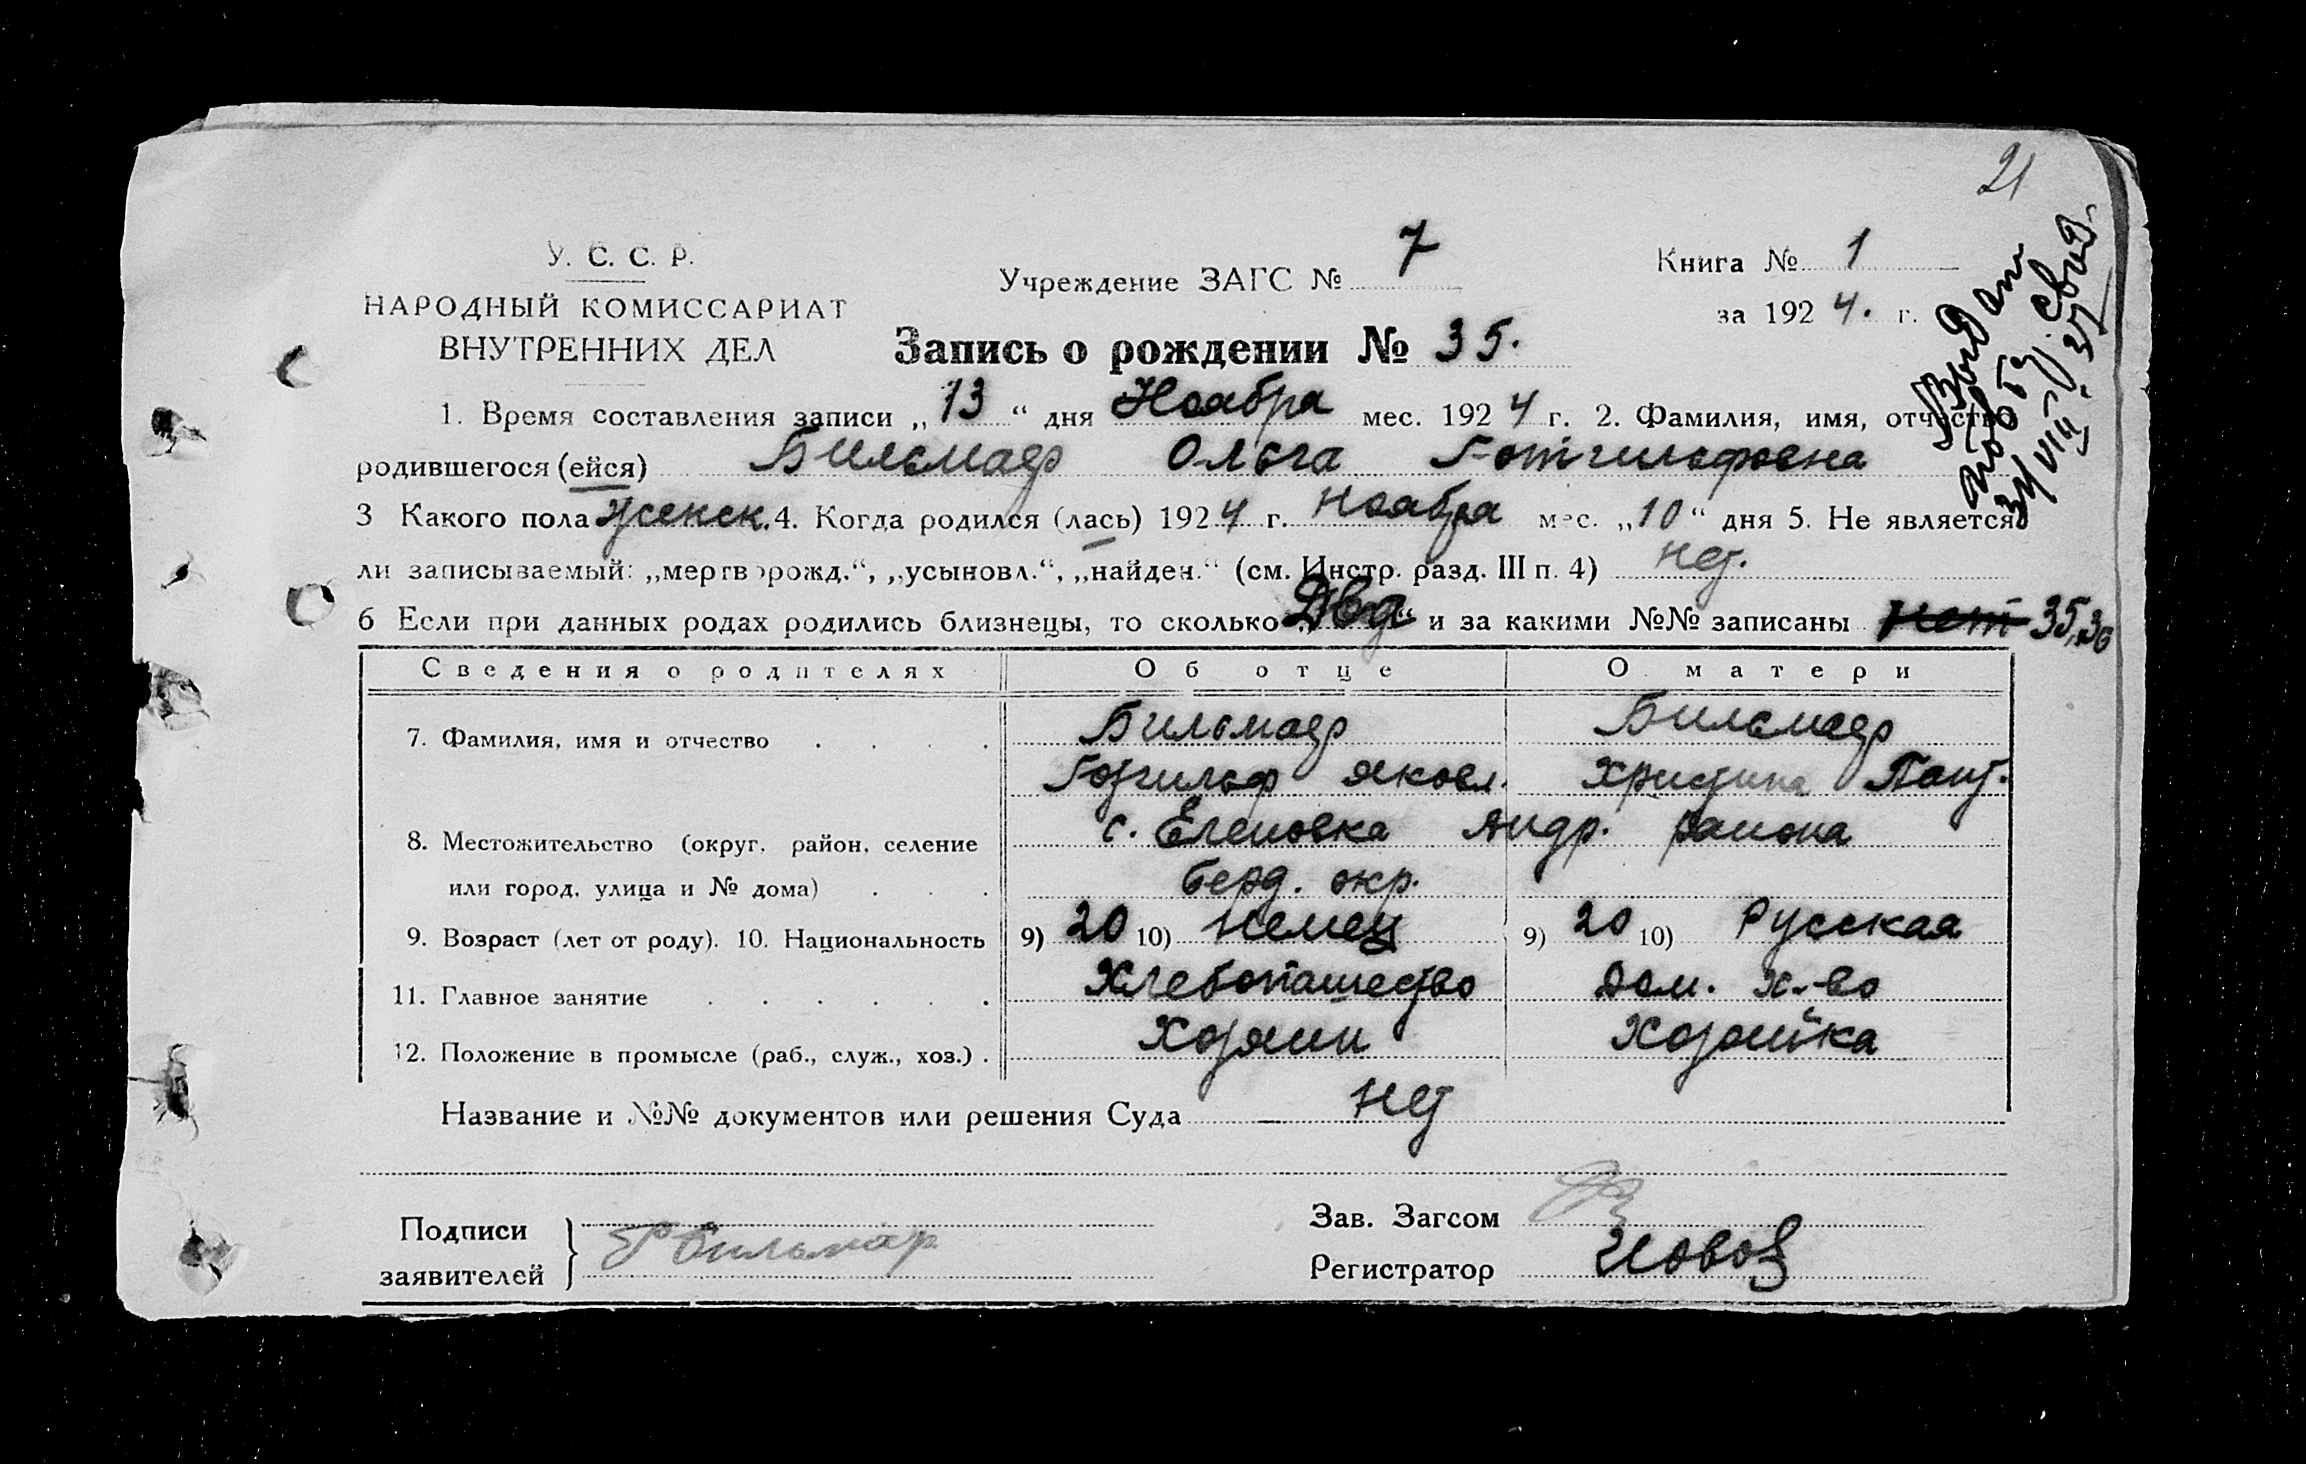 21
У. С. С. Р.
НАРОДНЫЙ КОМИССАРИАТ
ВНУТРЕННИХ ДЕЛ
Учреждение ЗАГС № 7
Книга № 1
за 1924. г.
Запись о рождении № 35.
Выдан
повт. свид.
31/VIII-37
1. Время составления записи „13“ дня Ноября мес. 1924 г. 2. Фамилия, имя, отчество
родившегося (ейся) Бильмаер Ольга Готгильфовна
3 Какого пола женск. 4. Когда родился (лась) 1924 г. Ноября мес. „10“ дня 5. Не является
ли записываемый: „мертворожд.“, „усыновл.“, „найден.“ (см. Инстр. разд. III п. 4) нет.
6 Если при данных родах родились близнецы, то сколько „Два“ и за какими №№ записаны нет 35,36
Сведения о родителях Об отце О матери
7. Фамилия, имя и отчество Бильмаер Бильмаер
Готгильф Яковл. Христина Пант.
8. Местожительство (округ, район, селение с. Еленовка Андр. района
или город, улица и № дома) Берд. окр.
9. Возраст (лет от роду). 10. Национальность 9) 20 10) Немец 9) 20 10) Русская
11. Главное занятие Хлебопашество Дом. х-во
12. Положение в промысле (раб., служ., хоз.) Хозяин Хозяйка
Название и №№ документов или решения Суда — Нет
Подписи
заявителей
Бильмар
Зав. Загсом
Регистратор